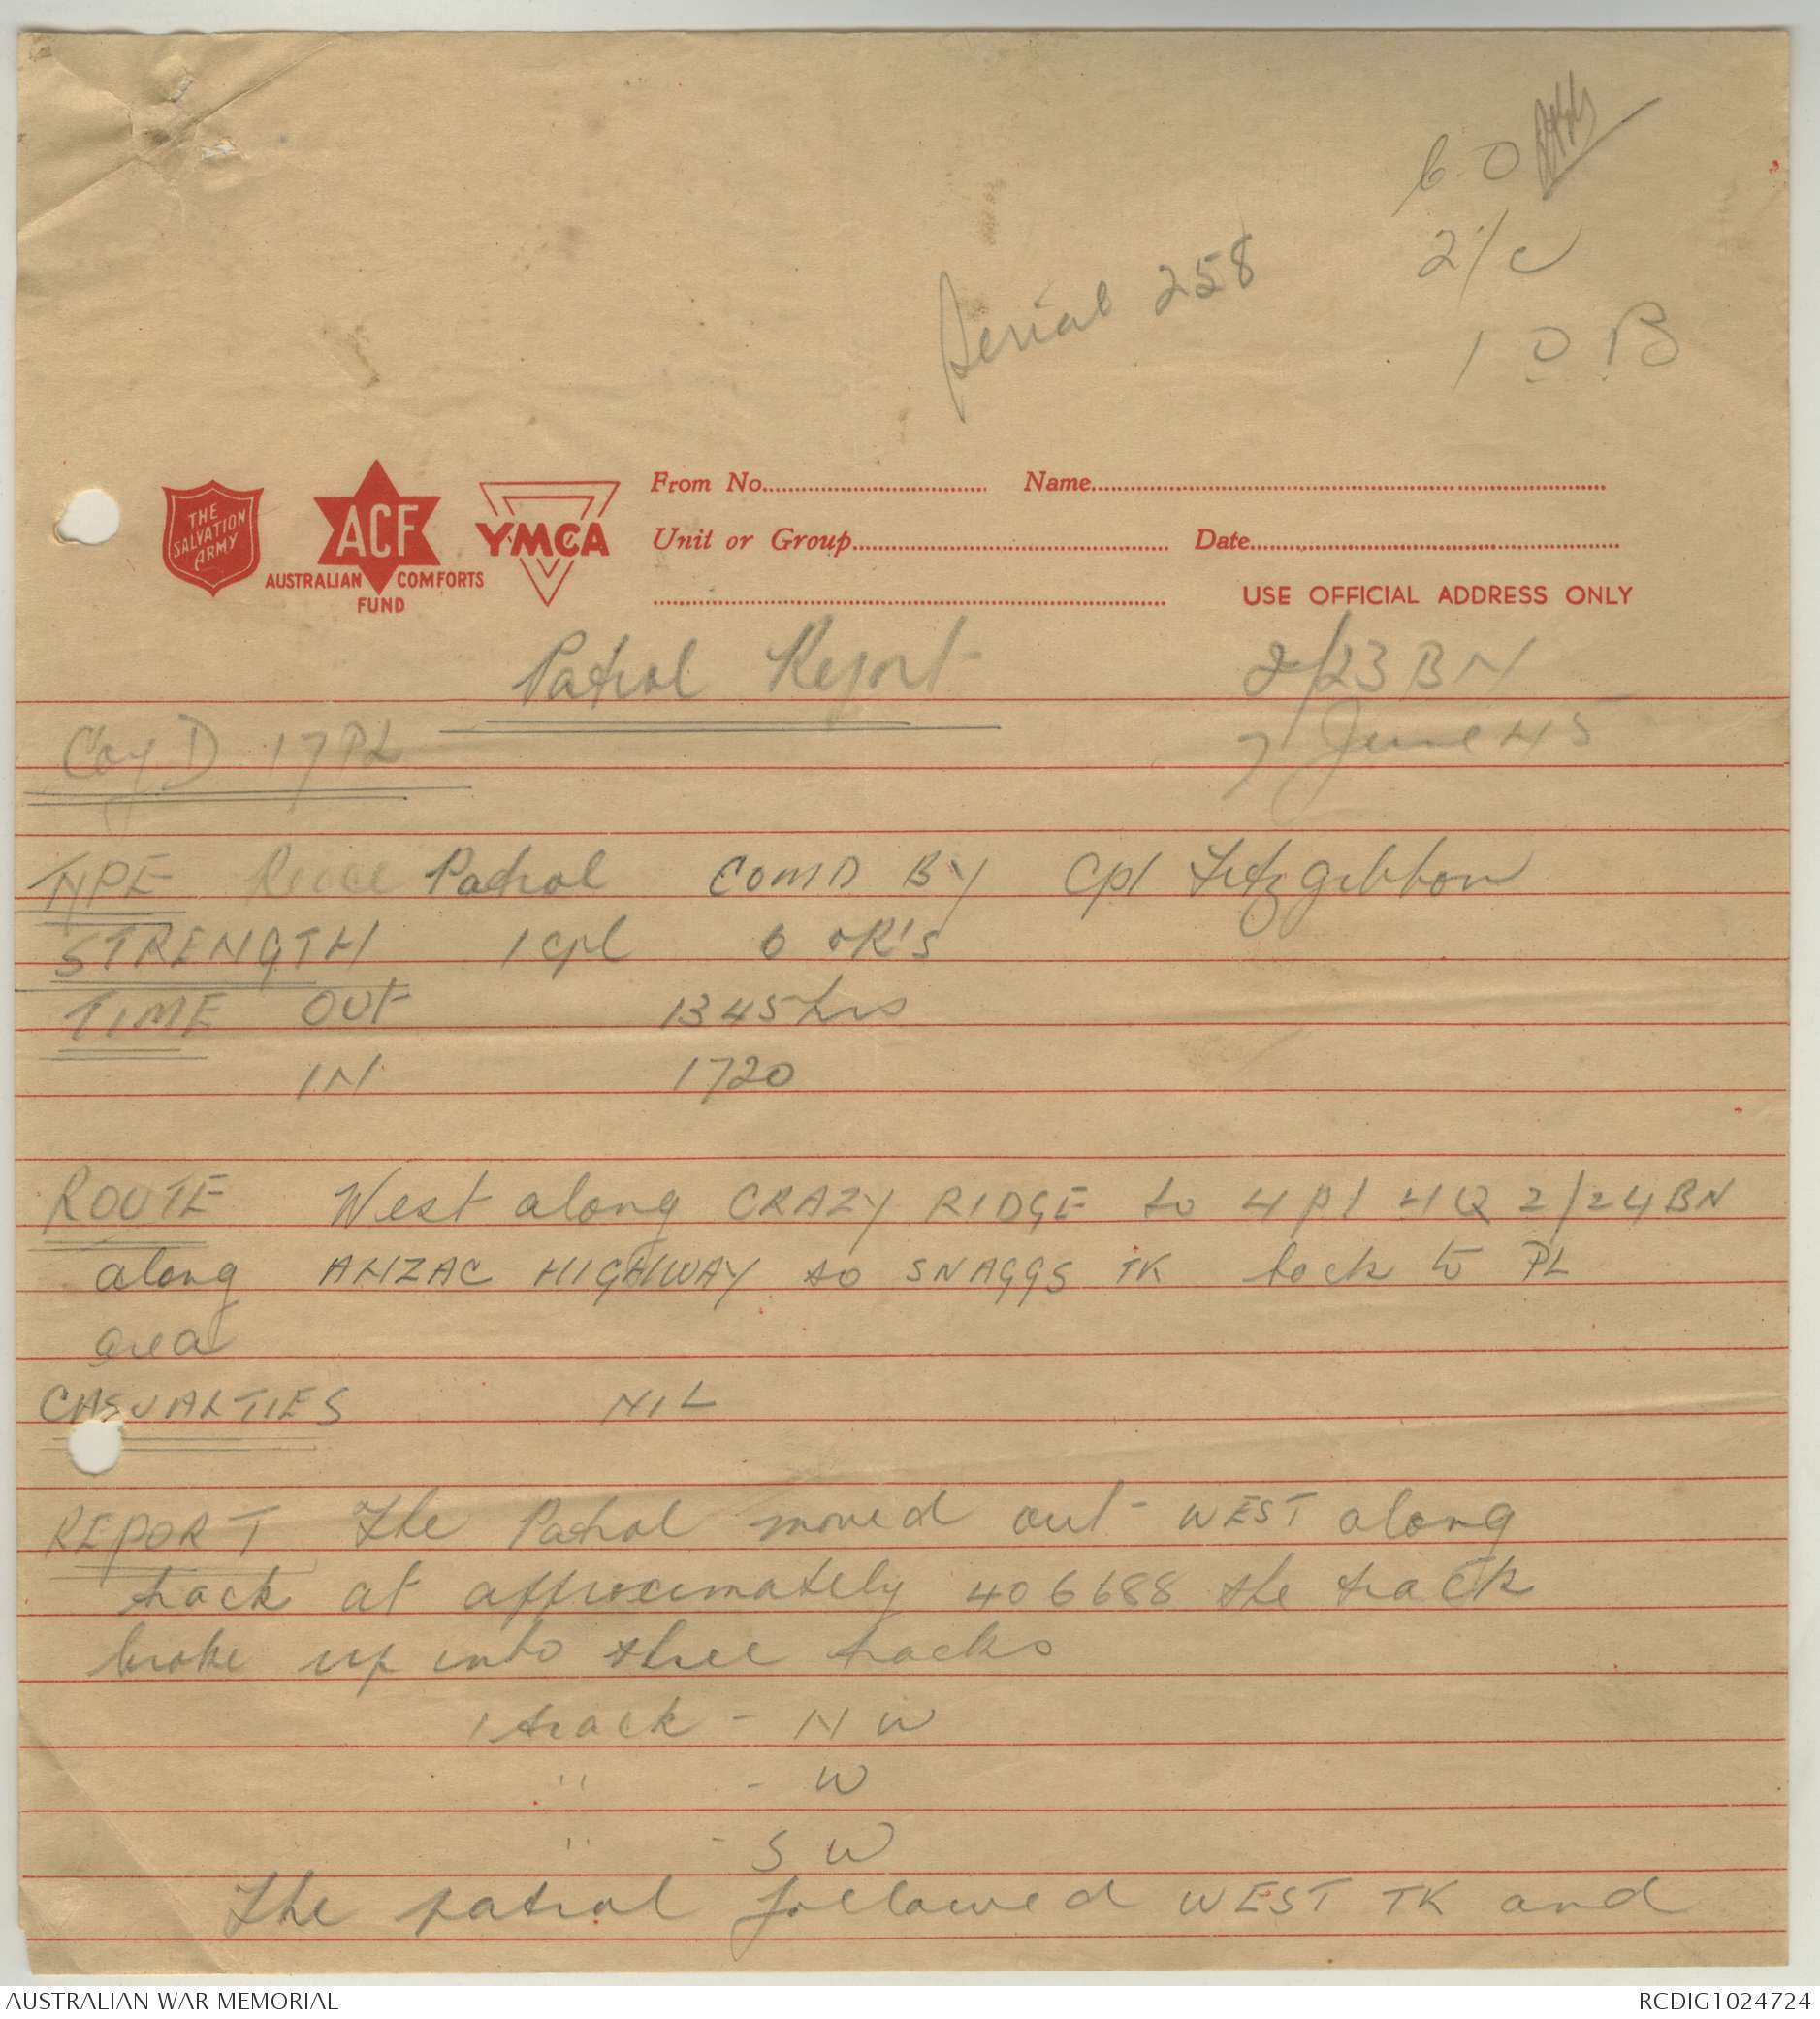 C.O
2/c
I.O. B
Serial 258
THE SALVATION ARMY
ACF
AUSTRALIAN COMFORTS FUND
YMCA
From No. Name
Unit or Group Date
USE OFFICIAL ADDRESS ONLY
Patrol Report 2/23 BN
Coy D 17 PL 7 June 45
TYPE Recce Patrol COMD BY Cpl Fitzgibbon
STRENGTH 1 cpl 6 OR'S
TIME OUT 1345 hrs
IN 1720
ROUTE West along CRAZY RIDGE to 4 pl HQ 2/24 BN
along ANZAC HIGHWAY to SNAGGS TK back to PL
area
CASUALTIES NIL
REPORT The Patrol moved out - WEST along
track at approximately 406688 the track
broke up into three tracks
1 track - N W
" - W
" - S W
The patrol followed WEST TK and
AUSTRALIAN WAR MEMORIAL RCDIG1024724